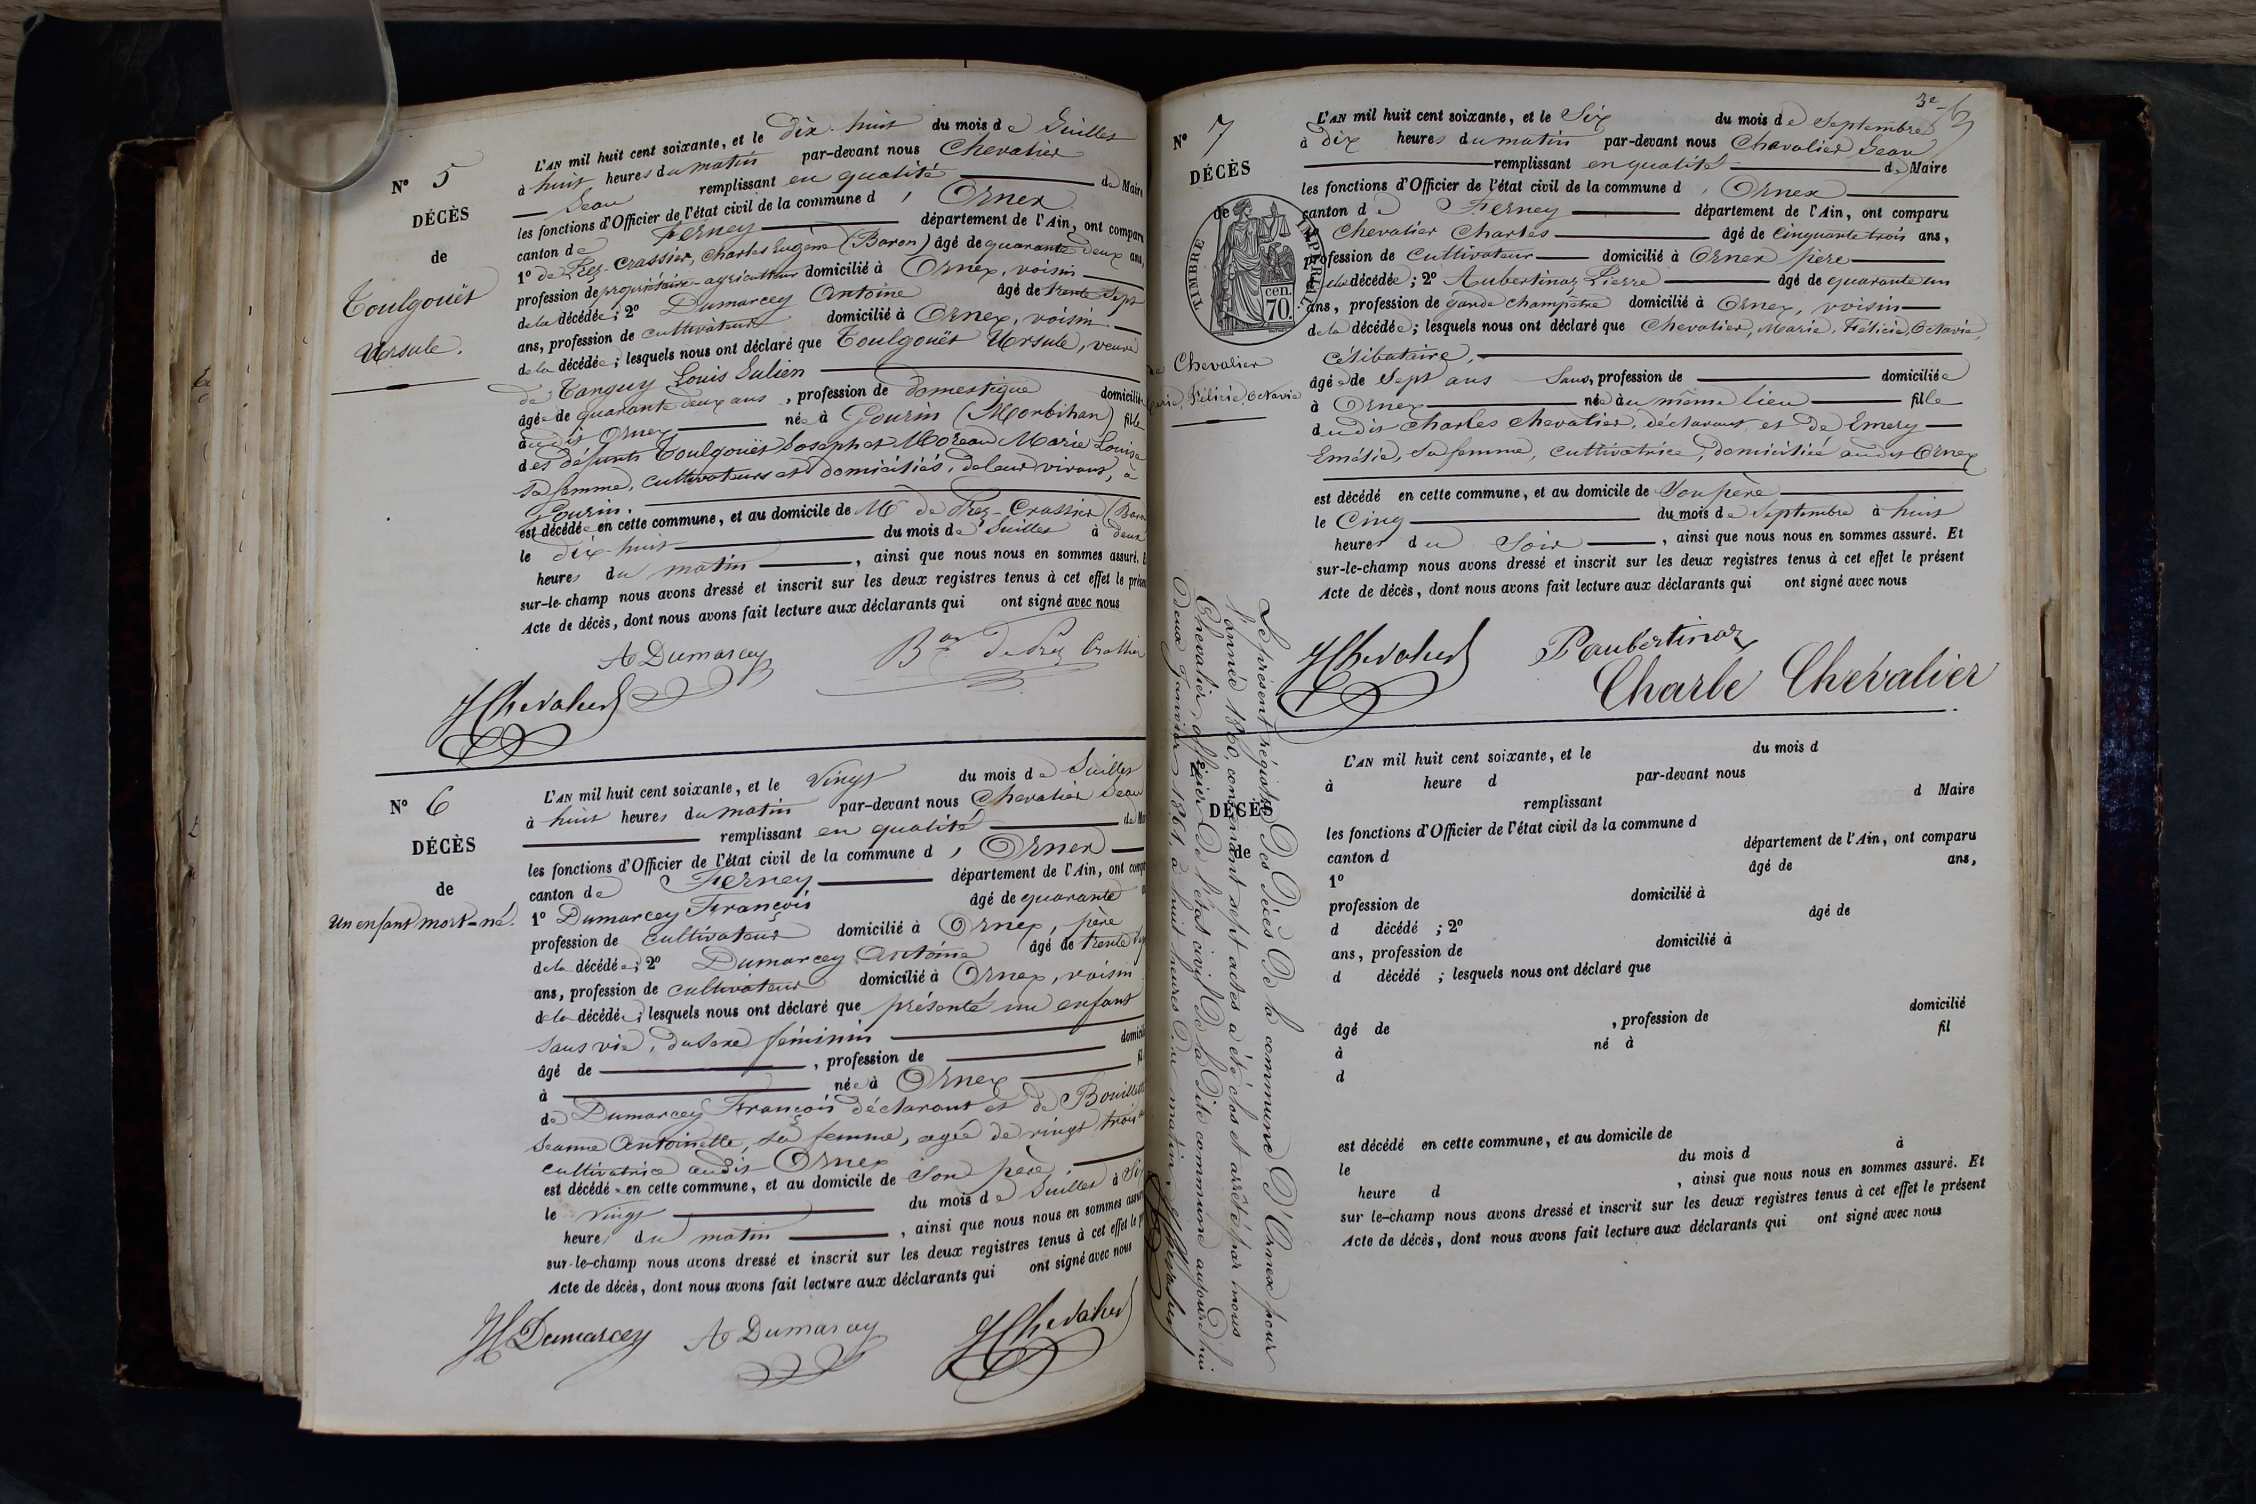 N° 5
DÉCÈS
de
Toulgouët
Ursule.
L'AN mil huit cent soixante, et le dix-huit du mois de Juillet
à huit heures du matin par-devant nous Chevalier
Jean remplissant en qualité de Maire
les fonctions d'Officier de l'état civil de la commune d'Ornex
canton de Ferney département de l'Ain, ont comparu
1° de Prez-Crassier, Charles Eugène (Baron) âgé de quarante deux ans,
profession de propriétaire-agriculteur domicilié à Ornex, voisin
de la décédée; 2° Dumarcey Antoine âgé de trente sept
ans, profession de cultivateur domicilié à Ornex, voisin
de la décédée; lesquels nous ont déclaré que Toulgouët Ursule, veuve
de Tanguy Louis Julien
âgée de quarante deux ans, profession de domestique domiciliée
audit Ornex née à Gourin (Morbihan) fille
des défunts Toulgouët Joseph et Moreau Marie Louise
sa femme, cultivateurs et domiciliés, de leur vivant, à
Gourin.
est décédée en cette commune, et au domicile de Mr de Prez-Crassier (Baron
le dix-huit du mois de Juillet à deux
heures du matin, ainsi que nous nous en sommes assuré. Et
sur-le-champ nous avons dressé et inscrit sur les deux registres tenus à cet effet le présent
Acte de décès, dont nous avons fait lecture aux déclarants qui ont signé avec nous
A Dumarcey Bon de Prez Crassier
JChevalier
N° 6
DÉCÈS
de
Un enfant mort-né.
L'AN mil huit cent soixante, et le vingt du mois de Juillet
à huit heures du matin par-devant nous Chevalier Jean
remplissant en qualité de Maire
les fonctions d'Officier de l'état civil de la commune d'Ornex
canton de Ferney département de l'Ain, ont comparu
1° Dumarcey François âgé de quarante
profession de cultivateur domicilié à Ornex, père
de la décédée; 2° Dumarcey Antoine âgé de trente sept
ans, profession de cultivateur domicilié à Ornex, voisin
de la décédée; lesquels nous ont déclaré que présenté un enfant
sans vie, du sexe féminin
âgé de , profession de domicilié
à née à Ornex fil
de Dumarcey François déclarant et de Bouillet
Jeanne Antoinette, sa femme, agée de vingt trois
cultivatrice audit Ornex
est décédé en cette commune, et au domicile de son père
le vingt du mois de Juillet à six
heures du matin, ainsi que nous nous en sommes assuré
sur-le-champ nous avons dressé et inscrit sur les deux registres tenus à cet effet le
Acte de décès, dont nous avons fait lecture aux déclarants qui ont signé avec nous
Dumarcey A Dumarcey JChevalier
3e
N° 7
DÉCÈS
de
TIMBRE IMPERIAL
cen.
70.
Chevalier
Marie, Félicie, Octavie
L'AN mil huit cent soixante, et le Six du mois de Septembre
à dix heures du matin par-devant nous Chevalier Jean
remplissant en qualité de Maire
les fonctions d'Officier de l'état civil de la commune d'Ornex
canton de Ferney département de l'Ain, ont comparu
Chevalier Charles âgé de cinquante trois ans,
profession de cultivateur domicilié à Ornex père
de la décédée; 2° Aubertinaz Pierre âgé de quarante un
ans, profession de garde champêtre domicilié à Ornex, voisin
de la décédée; lesquels nous ont déclaré que Chevalier, Marie, Félicie, Octavie,
célibataire,
âgée de sept ans sans, profession de domiciliée
à Ornex née au même lieu fille
dudit Charles Chevalier, déclarant et de Emery
Emélie, sa femme, cultivatrice, domiciliée audit Ornex
est décédé en cette commune, et au domicile de Son père
le Cinq du mois de Septembre à huit
heures du Soir, ainsi que nous nous en sommes assuré. Et
sur-le-champ nous avons dressé et inscrit sur les deux registres tenus à cet effet le présent
Acte de décès, dont nous avons fait lecture aux déclarants qui ont signé avec nous
JChevalier Paubertinaz
Charle Chevalier
Le présent régistre des décès de la commune d'Ornex pour
l'année 1860, contenant sept actes a été clos et arrêté par nous
Chevalier, officier de l'état civil de la dite commune aujourd'hui
deux Janvier 1861, à huit heures du matin. JChevalier
DÉCÈS
de
L'AN mil huit cent soixante, et le du mois d
à heure d par-devant nous
remplissant d Maire
les fonctions d'Officier de l'état civil de la commune d
canton d département de l'Ain, ont comparu
1° âgé de ans,
profession de domicilié à
d décédé ; 2° âgé de
ans, profession de domicilié à
d décédé ; lesquels nous ont déclaré que
âgé de , profession de domicilié
à né à fil
d
est décédé en cette commune, et au domicile de
le du mois d à
heure d , ainsi que nous nous en sommes assuré. Et
sur le-champ nous avons dressé et inscrit sur les deux registres tenus à cet effet le présent
Acte de décès, dont nous avons fait lecture aux déclarants qui ont signé avec nous